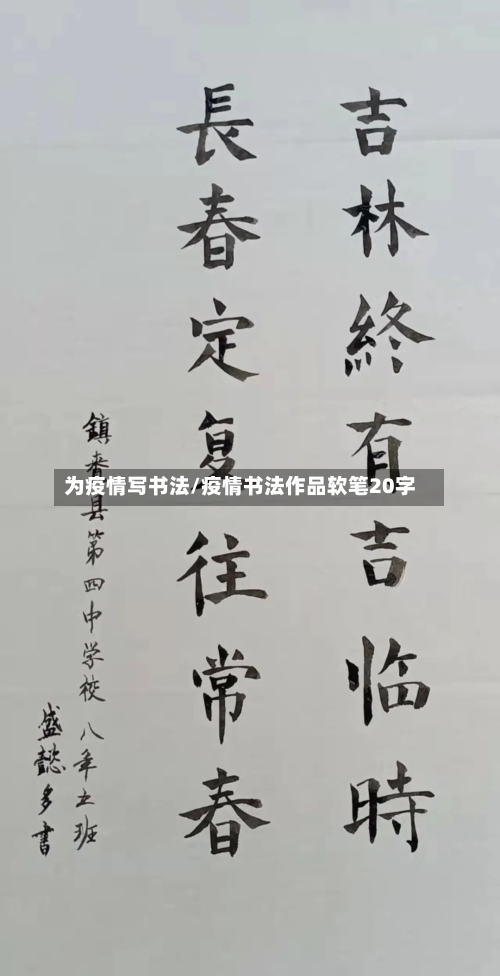 吉林終有吉临時
長春定复往常春
鎮赉县第四中学校八年五班
盛懿多書
为疫情写书法/疫情书法作品软笔20字